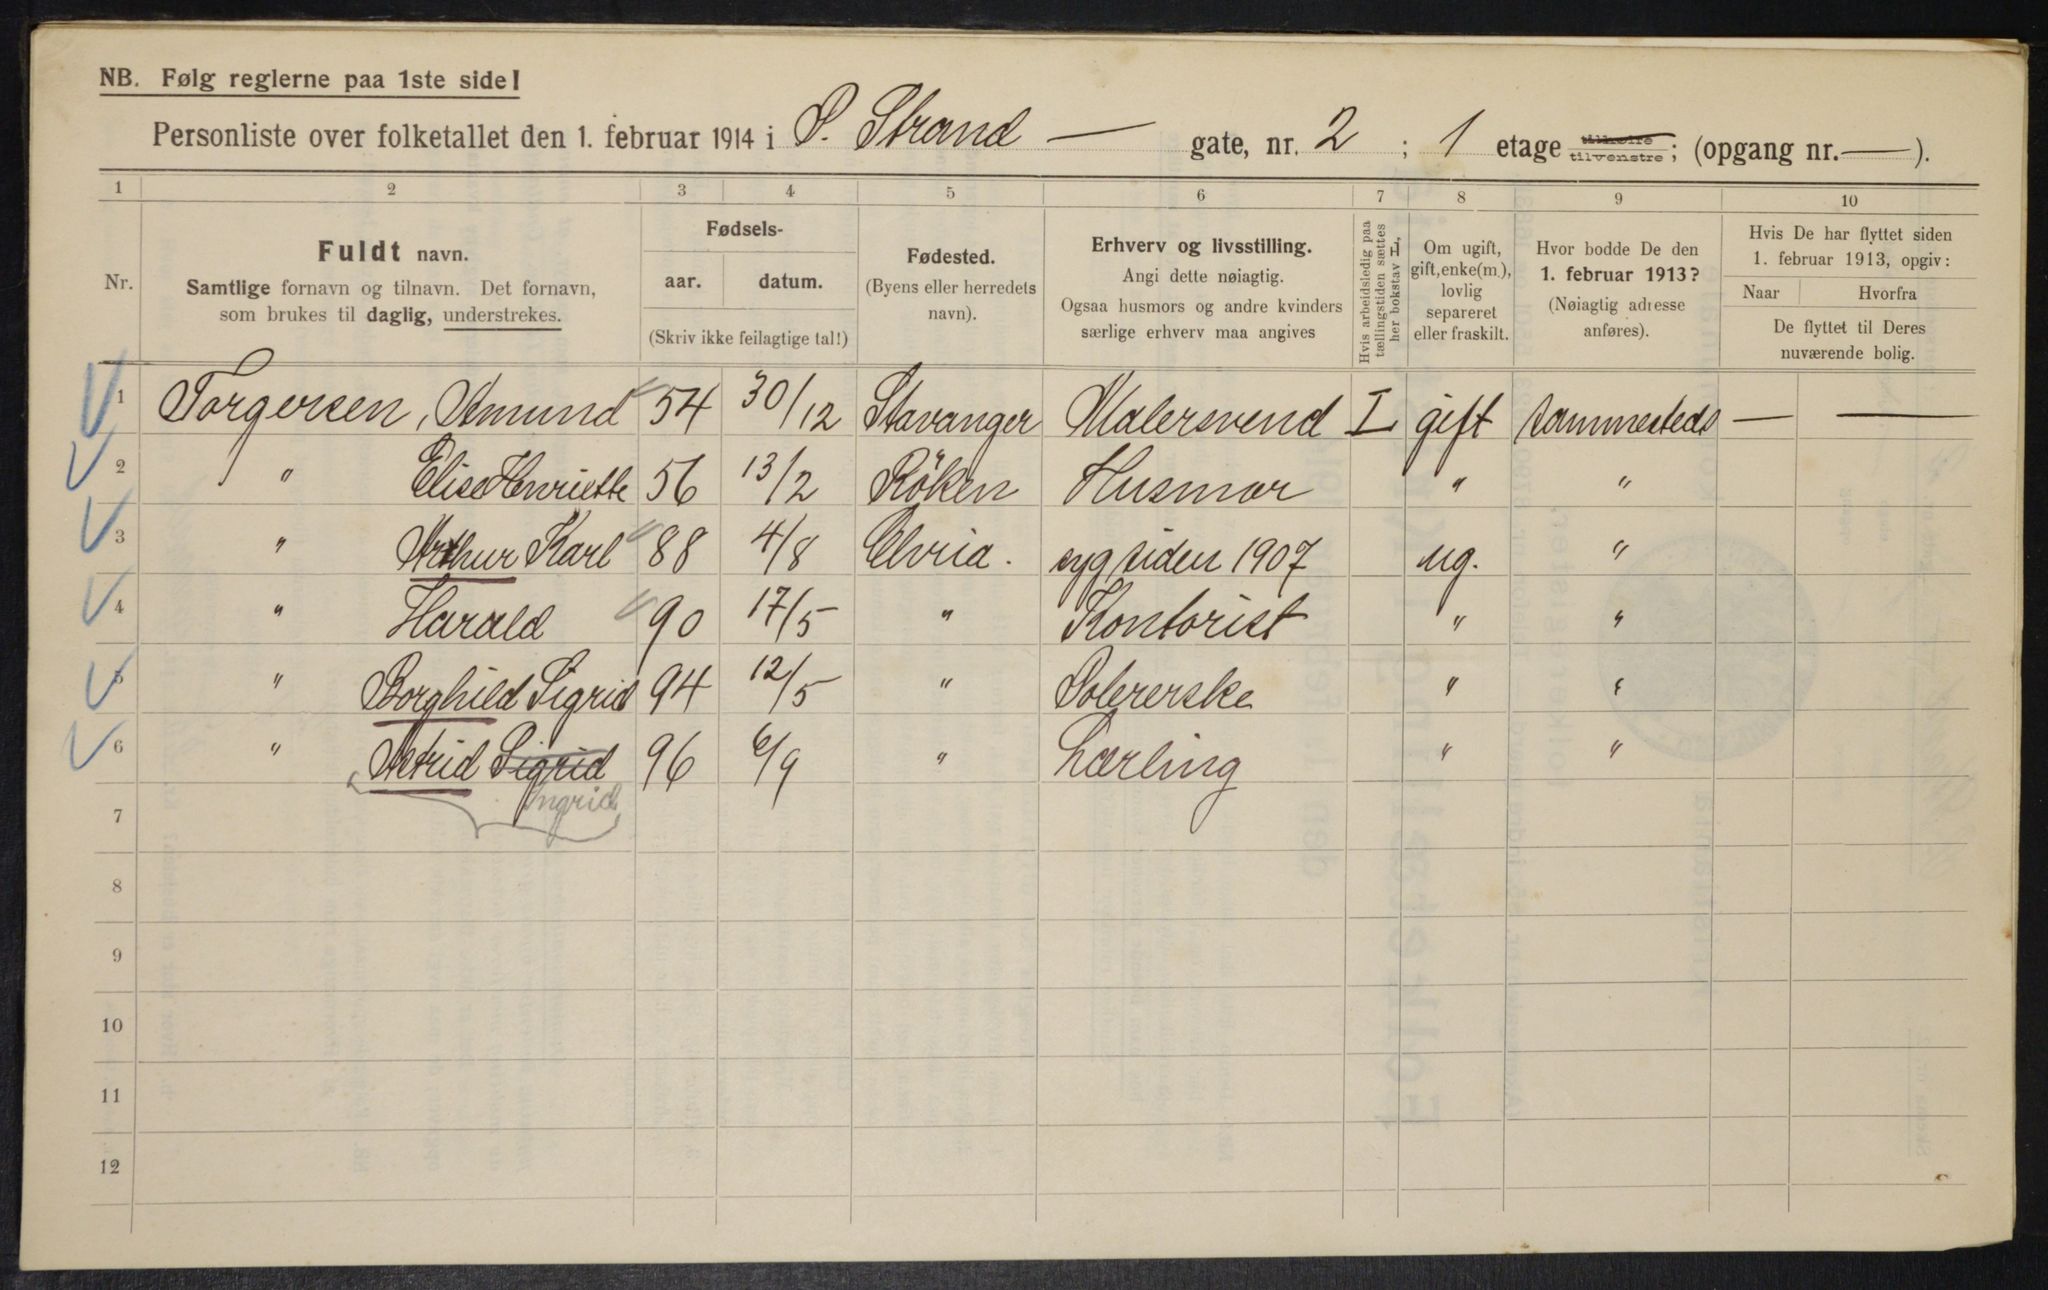 NB. Følg reglerne paa 1ste side!
Personliste over folketallet den 1. februar 1914 i S. Strand — gate, nr. 2 ; 1 etage tilhøire tilvenstre; (opgang nr. — ).
1 2 3 4 5 6 7 8 9 10
Nr.
Fuldt navn.
Samtlige fornavn og tilnavn. Det fornavn,
som brukes til daglig, understrekes.
Fødsels-
aar. datum.
(Skriv ikke feilagtige tal!)
Fødested.
(Byens eller herredets
navn).
Erhverv og livsstilling.
Angi dette nøiagtig.
Ogsaa husmors og andre kvinders
særlige erhverv maa angives
Hvis arbeidsledig paa
tællingstiden sættes
her bokstav L.
Om ugift,
gift, enke(m.),
lovlig
separeret
eller fraskilt.
Hvor bodde De den
1. februar 1913?
(Nøiagtig adresse
anføres).
Hvis De har flyttet siden
1. februar 1913, opgiv:
Naar Hvorfra
De flyttet til Deres
nuværende bolig.
1 Torgersen, Amund 54 30/12 Stavanger Malersvend I gift sammesteds — —
2 " Elise Henriette 56 13/2 Röken Husmor " "
3 " Arthur Karl 88 4/8 Chria. syg siden 1907 ug. "
4 " Harald 90 17/5 " Kontorist " "
5 " Borghild Sigrid 94 12/5 " Polererske " "
6 " Astrid Sigrid 96 6/9 " Lærling " "
Ingrid
7
8
9
10
11
12